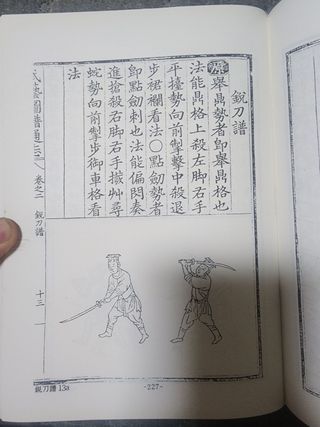 銳刀譜
原舉鼎勢者卽舉鼎格也
法能鼎格上殺左脚右手
平擡勢向前掣擊中殺退
步裙襴看法○點劍勢者
卽點劍刺也法能偏閃奏
進搶殺右脚右手撥艸尋
蛇勢向前掣步御車格看
法
武藝圖譜通志 卷之二 銳刀譜 十三
銳刀譜 13a
-227-